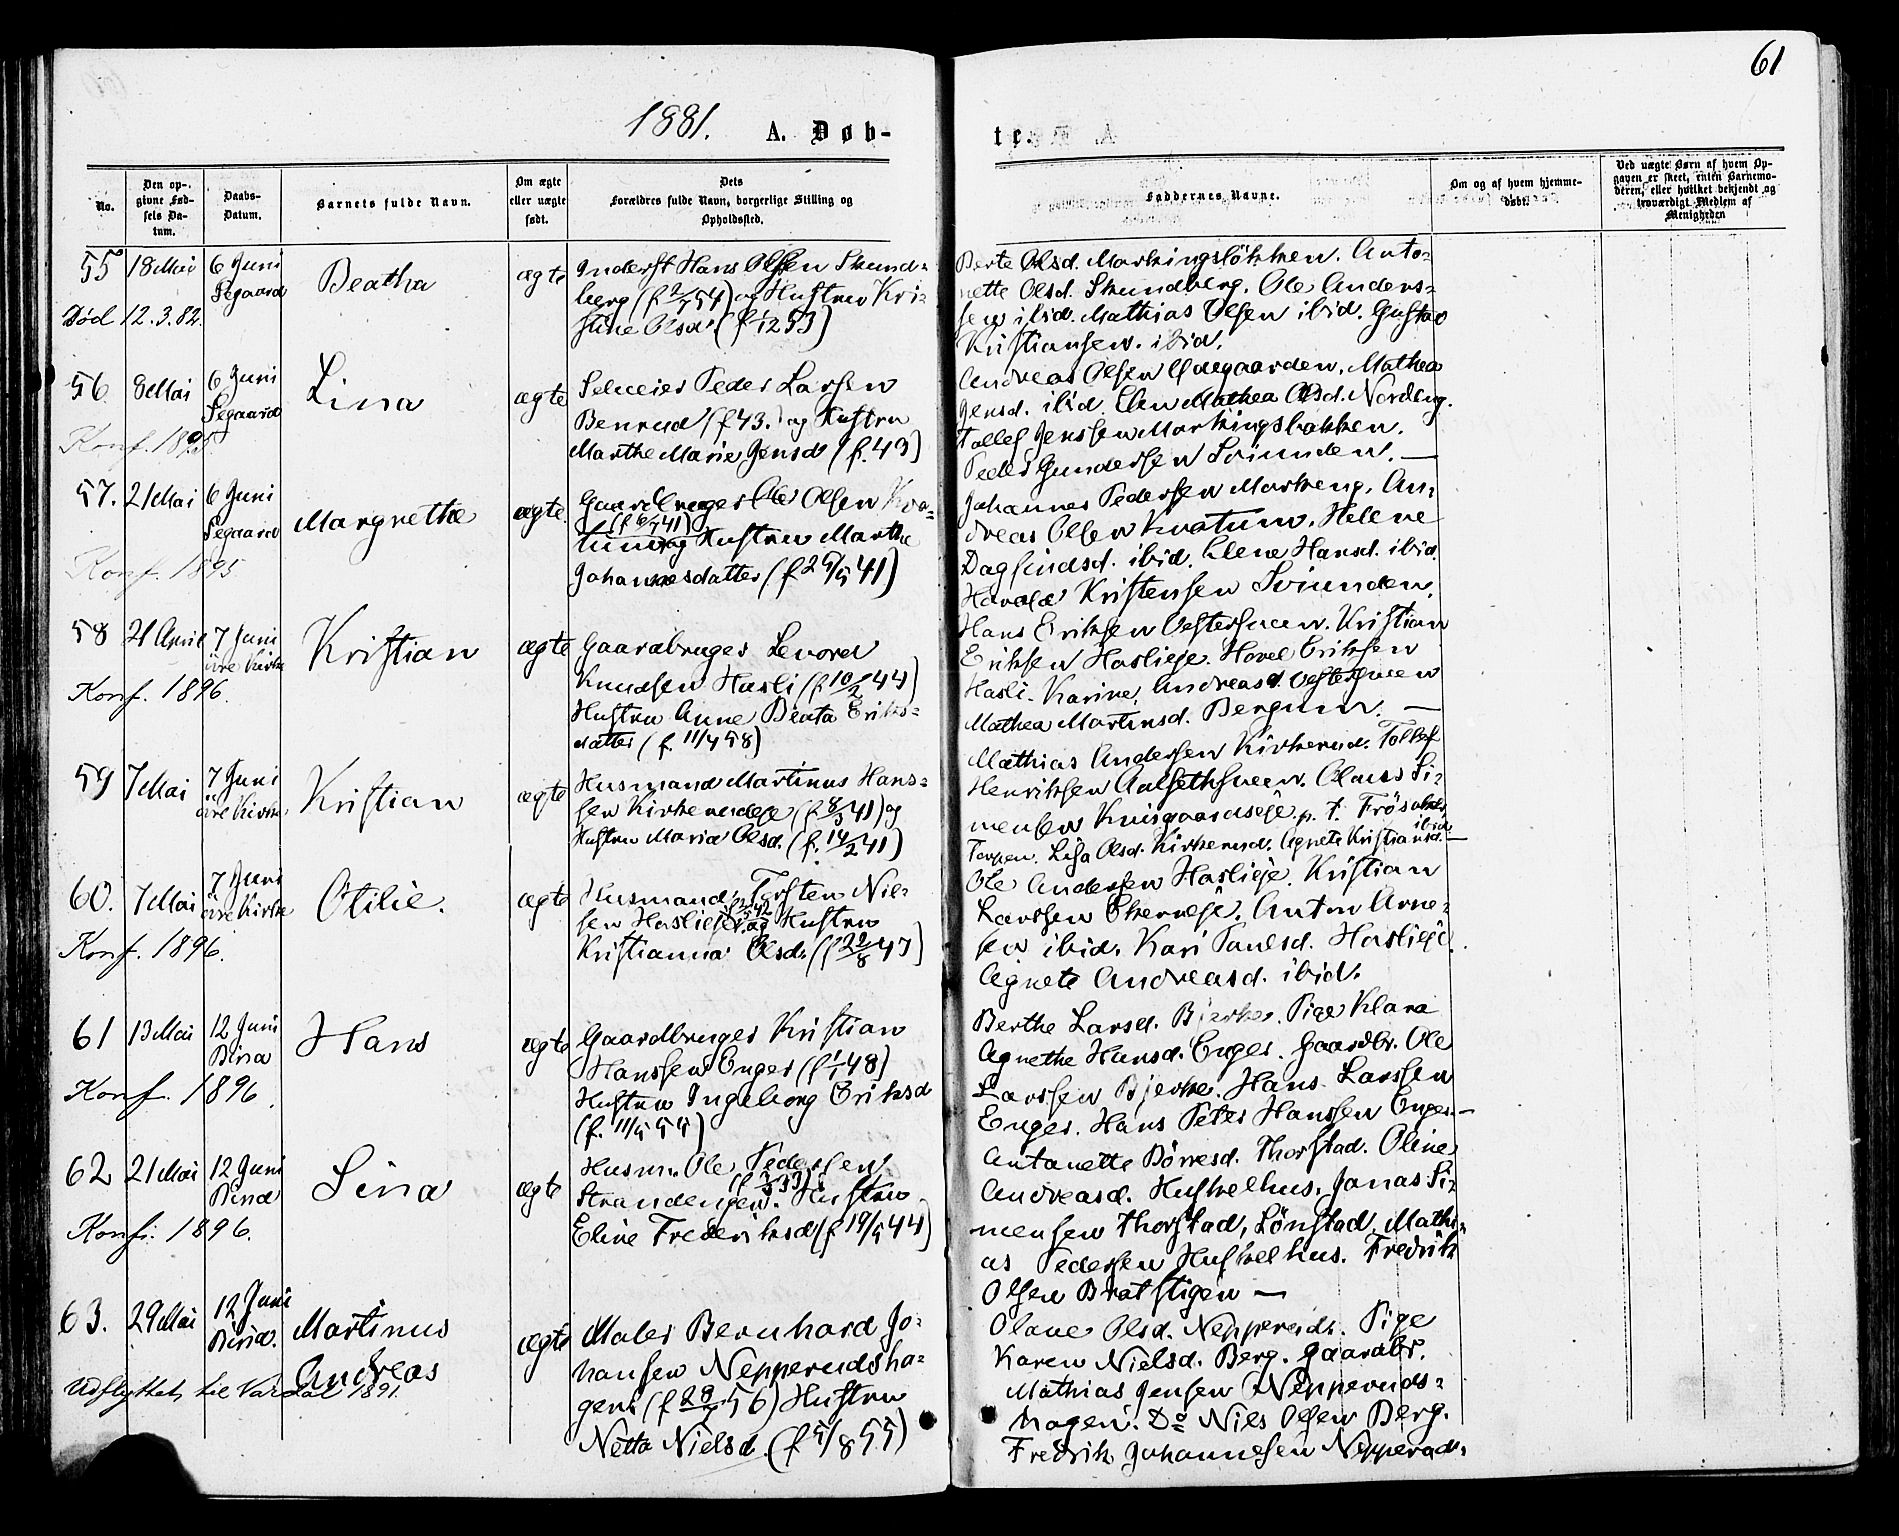 61
1881. A. Døb-
te.
No.
Den op-
givne Fød-
sels Da-
tum.
Daabs-
Datum.
Barnets fulde Navn.
Om ægte
eller uægte
født.
Dets
Forældres fulde Navn, borgerlige Stilling og
Opholdssted.
Faddernes Navne.
Om og af hvem hjemme-
døbt.
Ved uægte Børn af hvem Op-
gaven er skeet, enten Barnemo-
deren, eller hvilket bekjendt og
troværdigt Medlem af
Menigheden
55 18 Mai 6 Juni
Segaard
Død 12.3.82.
Beatha
ægte
Inderst Hans Olsen Skund-
berg og Hustru Kri-
stine Olsd.
Berte Olsd. Markingsløkken. Anto-
nette Olsd. Skundberg. Ole Anders-
sen ibid. Mathias Olsen ibid. Gustav
Kristiansen. ibid.
56 8 Mai 6 Juni
Segaard
Konf. 1895
Lina
ægte
Selveier Peder Larsen
Benrud (f. 43.) og Hustru
Marthe Marie Jensd. (f. 43)
Andreas Olsen. Mathea
Jensd. ibid. Elen Mathea Olsd. Nordeng.
Tollef Jenssen Markingsbakken.
Peder Gundersen Sviunden. —
57. 21 Mai 6 Juni
Segaard
Konf. 1895
Margrethe
ægte.
Gaardbruger Ole Olsen Kva-
tum og Hustru Marthe
Johannesdatter (f. 29/5 41)
Johannes Pedersen Markeng. An-
dreas Olsen Kvatum. Helene
Dagfindsd. ibid. Elene Hansd. ibid.
Harald Kristensen Sviunden.
58 21 April 7 Juni
øvre Kirke
Konf. 1896.
Kristian
ægte
Gaardbruger Levord
Knudsen Hasli (f. 10/2 44)
Hustru Anne Beata Eriks-
datter (f. 11/4 58)
Hans Eriksen Vestersveen. Kristian
Eriksen Haslieje. Hovel Eriksen
Hasli. Karine Andreasd. Vestersveen
Mathea Martinsd. Bergum. —
59 7 Mai 7 Juni
øvre Kirke
Kristian
ægte
Husmand Martinus Hans-
sen Kirkerudeje (f. 8/3 41) og
Hustru Maria Olsd. (f. 14/2 41)
Mathias Andersen Kirkerud. Tollef
Henriksen Aalsethsveen. Olaus Si-
mensen Kniesgaardseje p. t. Frösaker
Torpen. Lisa Olsd. Kirkerud. Agnete Kristiansd. ibid. —
60. 7 Mai 7 Juni
øvre Kirke
Konf. 1896.
Otilie.
ægte
Husmand Torsten Niel-
sen Haslieje og Hustru
Kristianna Olsd. (f. 22/8 47)
Ole Andersen Haslieje. Kristian
Larssen Ekerneje. Anton Arne-
sen ibid. Kari Paulsd. Haslieje.
Agnete Andreasd. ibid.
61 13 Mai 12 Juni
Biria
Konf. 1896.
Hans
ægte
Gaardbruger Kristian
Hanssen Enger (f. 1/1 48)
Hustru Ingeborg Eriksd
(f. 11/5 55)
Berthe Larsd. Bjerke. Pige Klara
Agnethe Hansd. Enger. Gaardbr. Ole
Larssen Bjerke. Hans Larssen
Enger. Hans Peter Hanssen Enger. —
62 21 Mai 12 Juni
Birid
Konf. 1896.
Lina
ægte
Husm. Ole Pedersen
Strandengen. Hustru
Eline Frederiksd (f. 19/5 44)
Antonette Börresd. Thorstad. Oline
Andreasd. Huskelhus. Jonas Si-
mensen Thorstad, Lönstad. Mathi-
as Pedersen Huskelhus. Fredrik
Olsen Bratstigen —
63. 29 Mai 12 Juni
Birid.
Udflyttet til Vardal 1891.
Martinus
Andreas
ægte
Maler Bernhard Jo-
hansen Nepperudsha-
gen Hustru
Netta Nielsd. (f. 5/8 55)
Olave Olsd. Nepperud. Pige
Karen Nielsd. Berg. Gaardbr.
Mathias Jensen Nepperuds-
hagen. Do Niels Olsen Berg.
Fredrik Johannesen Nepperud.